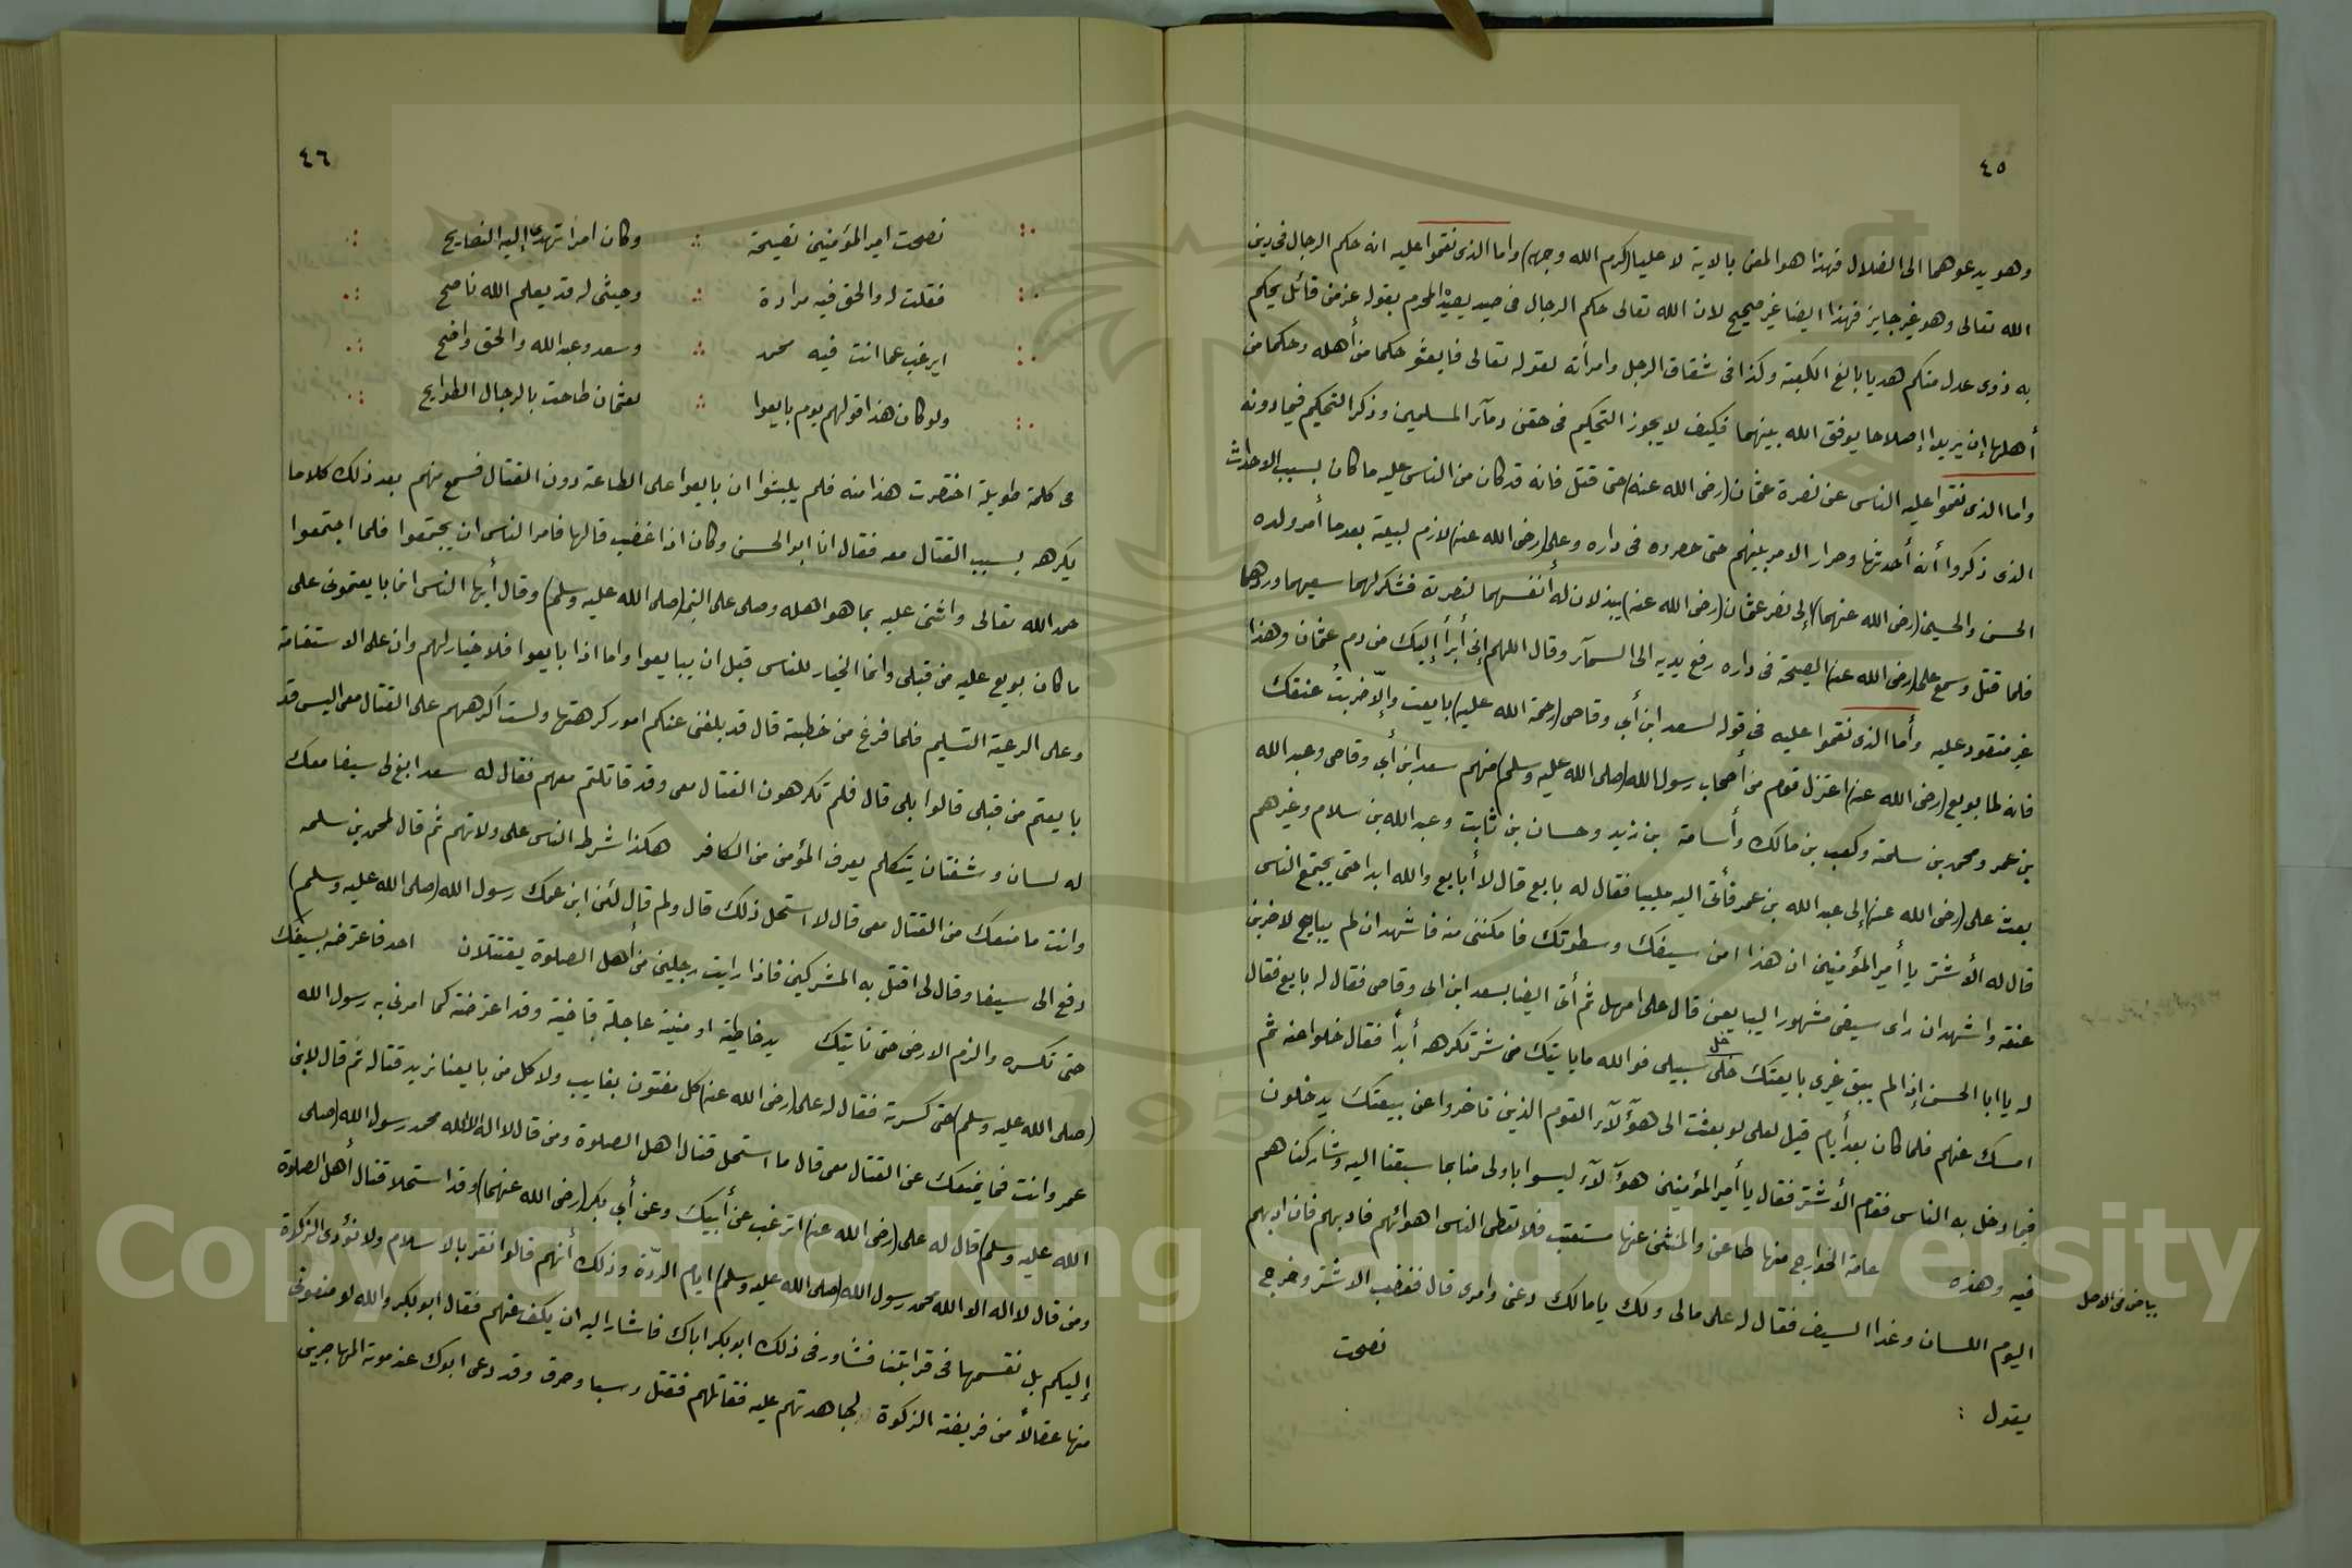 ٤٥
وهو يدعوهما الى الضلال فهذا هو المعنى بالاية لا عليا (كرم الله وجهه) واما الذى نقموا عليه انه حكم الرجال فى دين
الله تعالى وهو غير جايز فهذا ايضا غير صحيح لان الله تعالى حكم الرجال فى صيد يصيده المحرم بقوله عز من قائل يحكم
به ذوى عدل منكم هديا بالغ الكعبة وكذا فى شقاق الرجل وامرأته لقوله تعالى فابعثو حكما من أهله وحكما من
أهلها إن يريدا إصلاحا يوفق الله بينهما فكيف لا يجوز التحكيم فى حقن دمآء المسلمين وذكر التحكيم فيما دونه
واما الذى نقموا عليه الناس عن نصرة عثمان (رضى الله عنه) حتى قتل فانه قد كان من الناس عليه ما كان بسبب الاحداث
الذى ذكروا أنه أحدثها وصار الامر بينهم حتى حصروه فى داره وعلى (رضى الله عنه) لازم لبيته بعدما أمر ولده
الحسن والحسين (رضى الله عنهما) إلى نصر عثمان (رضى الله عنه) يبذلان له أنفسهما لنصرته فشكر لهما سعيهما وردهما
فلما قتل وسمع على (رضى الله عنه) الصيحة فى داره رفع يديه الى السمآء وقال اللهم إنى أبرأ إليك من دم عثمان وهذا
غير منقود عليه وأما الذى نقموا عليه فى قوله لسعد ابن أبي وقاص (رحمة الله عليه) بايعت وإلّا ضربتُ عنقك
فانه لما بويع (رضى الله عنه) اعتزل قوم من أصحاب رسول الله (صلى الله عليه وسلم) منهم سعد ابن أبي وقاص وعبد الله
بن عمر ومحمد بن سلمة وكعب بن مالك وأسامة بن زيد وحسان بن ثابت وعبد الله بن سلام وغيرهم
بعث على (رضى الله عنه) إلى عبد الله بن عمر فأتى اليه ملبيا فقال له بايع قال لا أبايع والله ابدا حتى يجتمع الناس
قال له الأشتر يا أمير المؤمنين ان هذا امن سيفك وسطوتك فامكننى منه فاشهد ان لم يبايع لاضربن
عنقه واشهد ان راى سيفى مشهورا ليبايعن قال على امهل ثم أتى ايضا بسعد ابن ابى وقاص فقال له بايع فقال
له يا ابا الحسن إذا لم يبق غيرى بايعتك خلى سبيلى فوالله ما يايتك من شر تكرهه أبداً فقال خلوا عنه ثم
خل
امسك عنهم فلما كان بعد أيام قيل لعلى لو بعثت الى هؤلآء القوم الذين تاخروا عن بيعتك يدخلون
فيما دخل به الناس فقام الأشتر فقال يا أمير المؤمنين هؤلآء ليسوا باولى منا بما سبقنا اليه وشاركناهم
فيه وهذه عامة الخوارج منها طاعن والمنثنى عنها مستعتب فلا تعطى الناس اهوائهم فادبهم فان ادبهم
بياض فى الاصل
اليوم اللسان وغدا السيف فقال له على مالى ولك يا مالك دعنى وامرى قال فغضب الاشتر وخرج
يقول :
نصحت
٤٦
نصحت امير المؤمنين نصيحة وكان امرأ تهدى إليه النصايح
فقلت له والحق فيه مرادة وحيثى له قد يعلم الله ناصح
ايرغب عما انت فيه محمد وسعد وعبد الله والحق واضح
ولو كان هذا قولهم يوم بايعوا لعثمان طاحت بالرجال الطوايح
فى كلمة طويلة اختصرت هذا منه فلم يلبثوا ان بايعوا على الطاعة دون القتال فسمع منهم بعد ذلك كلاما
يكرهه بسبب القتال معه فقال انا ابو الحسن وكان اذا غضب قالها فامر الناس ان يجتمعوا فلما اجتمعوا
حمد الله تعالى واثنى عليه بما هو اهله وصلى على النبى (صلى الله عليه وسلم) وقال أيها الناس انما بايعتمونى على
ما كان بويع عليه من قبلى وانما الخيار للناس قبل ان يبايعوا واما اذا بايعوا فلا خيار لهم وان على الاستقامة
وعلى الرعية التسليم فلما فرغ من خطبته قال قد بلغنى عنكم امور كرهتها ولست اكرههم على القتال معى اليس قد
بايعتم من قبلى قالوا بلى قال فلم تكرهون القتال معى وقد قاتلتم معهم فقال له سعد ابغ لى سيفا معك
له لسان وشفتان يتكلم يعرف المؤمن من الكافر هكذا شرط الناس على ولاتهم ثم قال لمحمد بن سلمه
وانت ما منعك من القتال معى قال لا استحل ذلك قال ولم قال لئن ابن عمك رسول الله (صلى الله عليه وسلم)
دفع الى سيفا وقال لى اقتل به المشركين فاذا رايت رجلين من أهل الصلوة يقتتلان احد فاعترضه بسيفك
حتى تكسره والزم الارض حتى تايتك يد خاطية او منية عاجلة قاضية وقد اعترضته كما امرنى به رسول الله
(صلى الله عليه وسلم) حتى كسرته فقال له على (رضى الله عنه) كل مفتون بغايب ولا كل من بايعنا نريد قتاله ثم قال لابن
عمر وانت فما يمنعك عن القتال معى قال ما استحل قتال اهل الصلوة ومن قال لا اله الا الله محمد رسول الله (صلى
الله عليه وسلم) قال له على (رضى الله عنه) اترغب عن أبيك وعن أبي بكر (رضى الله عنهما) وقد استحلا قتال أهل الصلوة
ومن قال لا اله الا الله محمد رسول الله (صلى الله عليه وسلم) ايام الردّة وذلك أنهم قالوا نقر بالاسلام ولا نؤدى الزكاة
إليكم بل نقسمها فى قرابتنا فشاور فى ذلك ابو بكر اباك فاشار اليه ان يكف عنهم فقال ابو بكر والله لو منعونى
منها عقالاً من فريضة الزكوة لجاهدتهم عليه فقاتلهم فقتل وسبا وحرق وقد دعى ابوك عند موته المهاجرين
Copyright © King Saud University
195